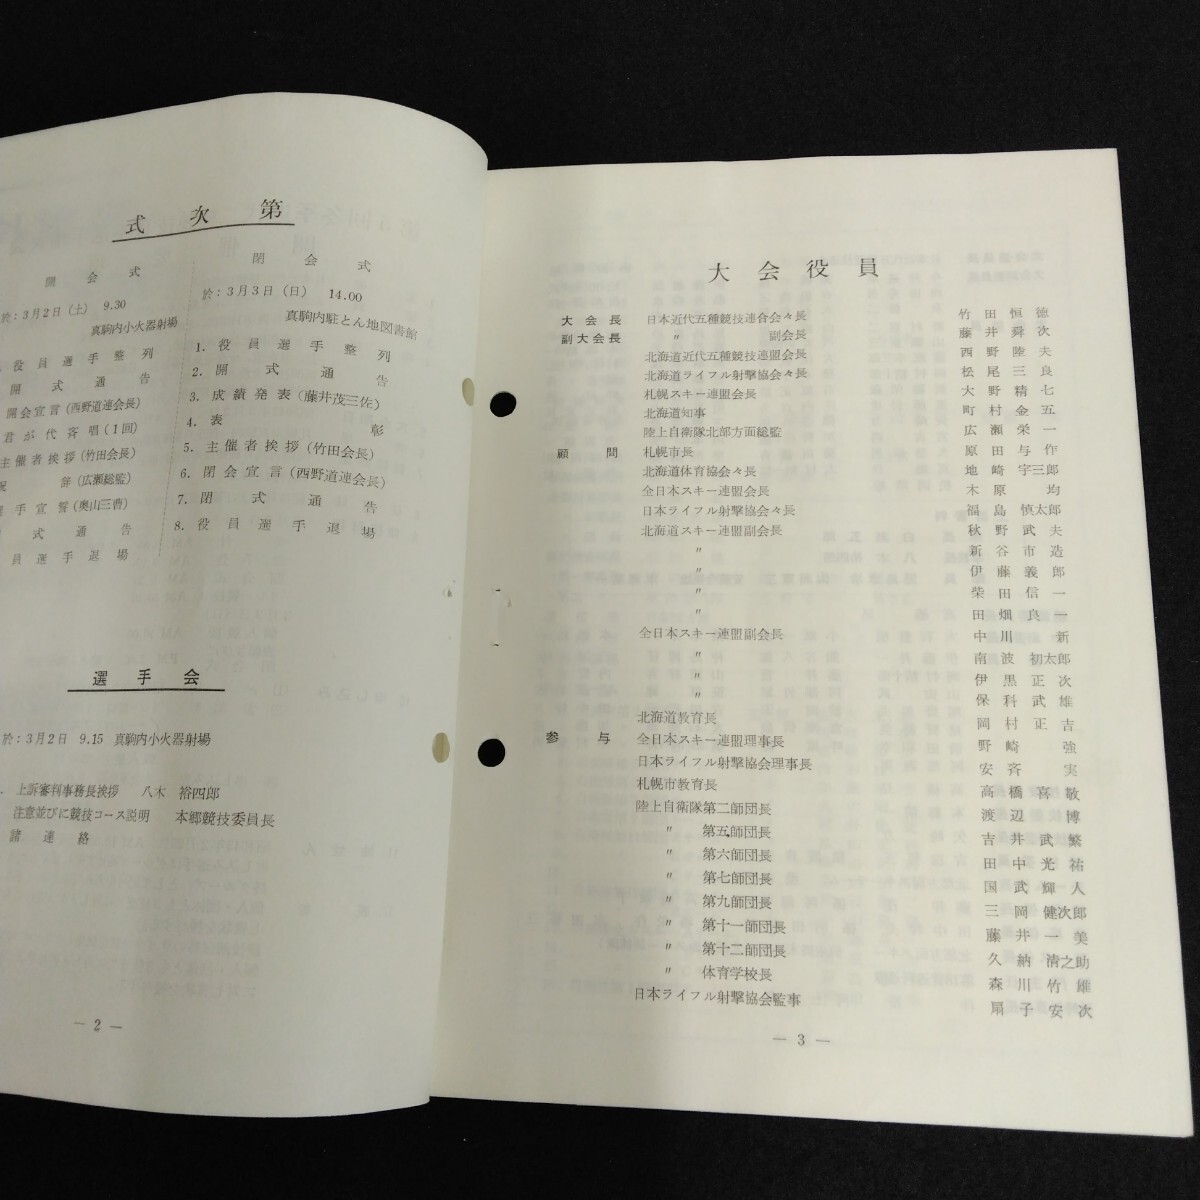 式次第
開会式
於：3月2日（土） 9.30
真駒内小火器射場
役員選手整列
開式通告
開会宣言（西野道連会長）
君が代斉唱（1回）
主催者挨拶（竹田会長）
祝辞（広瀬総監）
選手宣誓（奥山三曹）
式通告
員選手退場
閉会式
於：3月3日（日） 14.00
真駒内駐とん地図書館
1. 役員選手整列
2. 開式通告
3. 成績発表（藤井茂三佐）
4. 表彰
5. 主催者挨拶（竹田会長）
6. 閉会宣言（西野道連会長）
7. 閉式通告
8. 役員選手退場
選手会
於：3月2日 9.15 真駒内小火器射場
上訴審判事務長挨拶 八木 裕四郎
注意並びに競技コース説明 本郷競技委員長
諸連絡
— 2 —
大会役員
大会長 日本近代五種競技連合会々長 竹田恒徳
副大会長 〃 副会長 藤井舜次
北海道近代五種競技連盟会長 西野陸夫
北海道ライフル射撃協会々長 松尾三良
札幌スキー連盟会長 大野精七
北海道知事 町村金五
陸上自衛隊北部方面総監 広瀬栄一
顧問 札幌市長 原田与作
北海道体育協会々長 地崎宇三郎
全日本スキー連盟会長 木原均
日本ライフル射撃協会々長 福島慎太郎
北海道スキー連盟副会長 秋野武夫
〃 新谷市造
〃 伊藤義郎
〃 柴田信一
〃 田畑良一
全日本スキー連盟副会長 中川新
〃 南波初太郎
〃 伊黒正次
〃 保科武雄
北海道教育長 岡村正吉
参与 全日本スキー連盟理事長 野崎強
日本ライフル射撃協会理事長 安斉実
札幌市教育長 高橋喜敬
陸上自衛隊第二師団長 渡辺博
〃 第五師団長 吉井武繁
〃 第六師団長 田中光祐
〃 第七師団長 国武輝人
〃 第九師団長 三岡健次郎
〃 第十一師団長 藤井一美
〃 第十二師団長 久納清之助
〃 体育学校長 森川竹雄
日本ライフル射撃協会監事 扇子安次
— 3 —